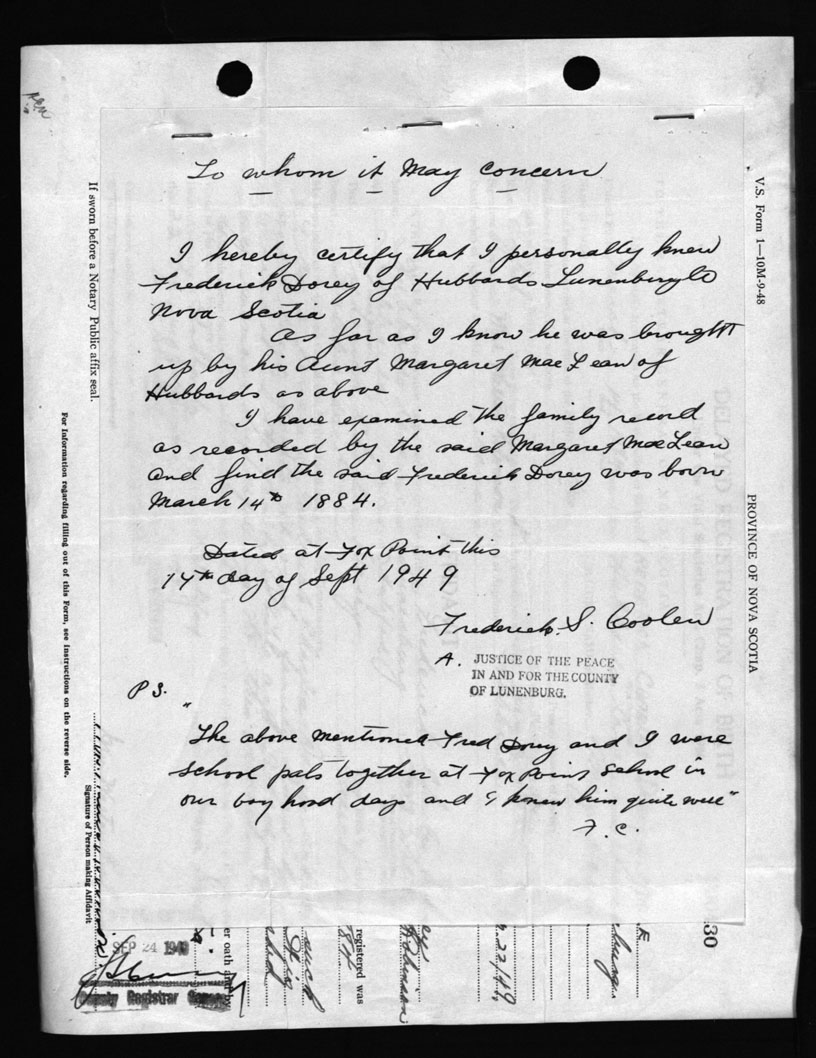 To whom it May Concern
I hereby certify that I personally knew
Frederick Dorey of Hubbards Lunenburg Co
Nova Scotia
As far as I know he was brought
up by his Aunt Margaret MacLean of
Hubbards as above
I have examined the family record
as recorded by the said Margaret MacLean
and find the said Frederick Dorey was born
March 14th 1884.
Dated at Fox Point this
14th day of Sept 1949
Frederick. S. Coolen
A. JUSTICE OF THE PEACE
IN AND FOR THE COUNTY
OF LUNENBURG.
P S.
"The above mentioned Fred Dorey and I were
school pals together at Fox Point School in
our boy hood days and I knew him quite well"
F. C.
V.S. Form 1—10M-9-48
PROVINCE OF NOVA SCOTIA
If sworn before a Notary Public affix seal.
For Information regarding filling out of this Form, see instructions on the reverse side.
Signature of Person making Affidavit
SEP 24 1949
Deputy Registrar General
er oath
registered was
30